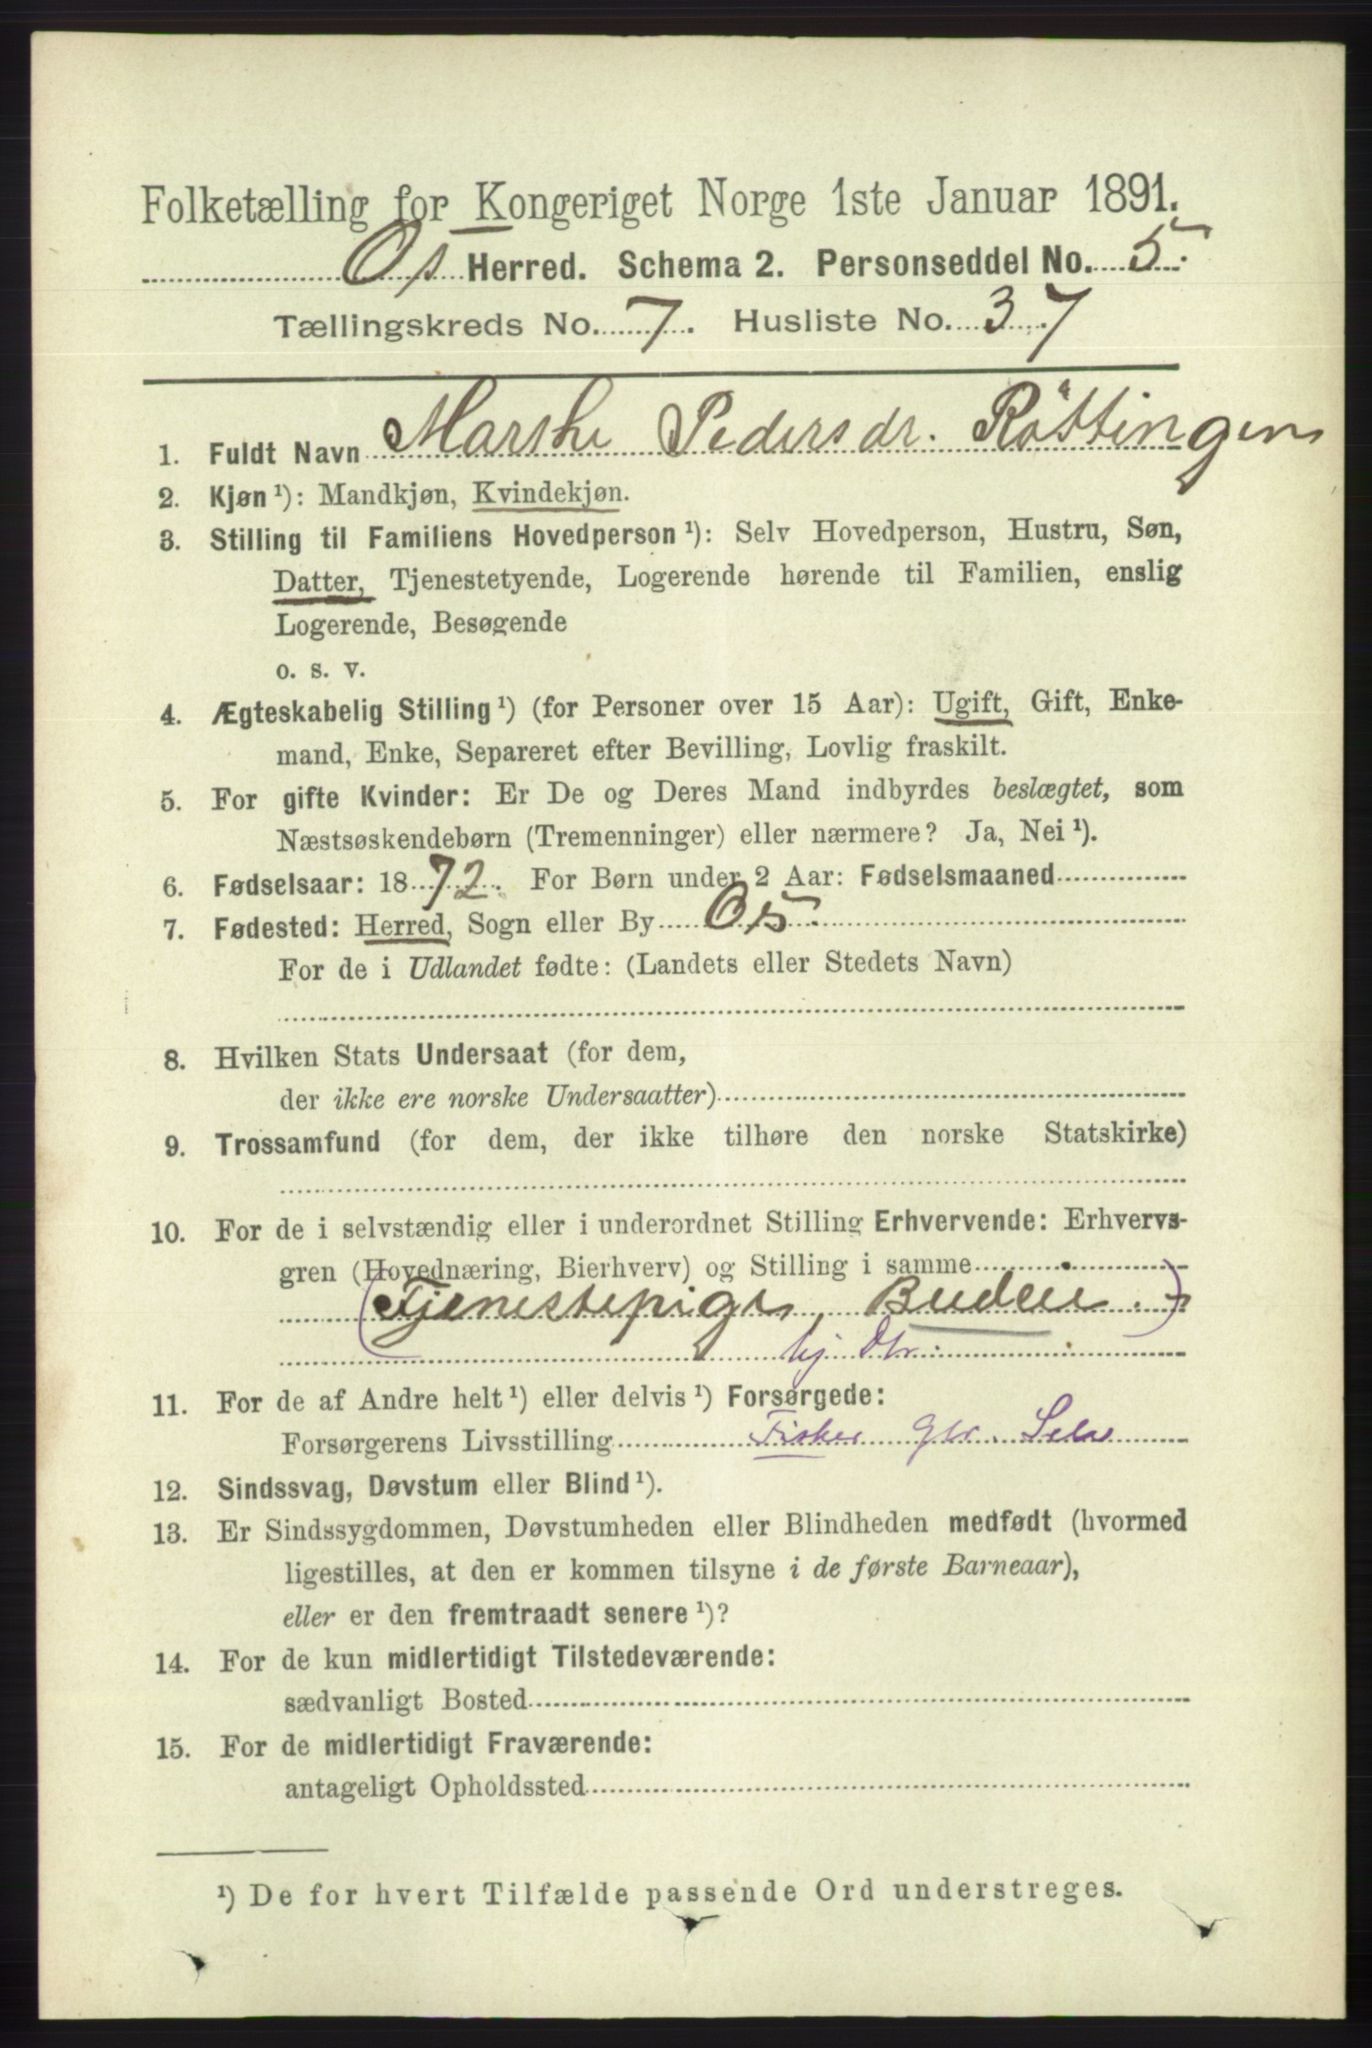 Folketælling for Kongeriget Norge 1ste Januar 1891.
Os Herred. Schema 2. Personseddel No. 5.
Tællingskreds No. 7. Husliste No. 37
1. Fuldt Navn Marthe Pedersdr. Röttingen
2. Kjøn ¹): Mandkjøn, Kvindekjøn.
3. Stilling til Familiens Hovedperson ¹): Selv Hovedperson, Hustru, Søn,
Datter, Tjenestetyende, Logerende hørende til Familien, enslig
Logerende, Besøgende
o. s. v.
4. Ægteskabelig Stilling ¹) (for Personer over 15 Aar): Ugift, Gift, Enke-
mand, Enke, Separeret efter Bevilling, Lovlig fraskilt.
5. For gifte Kvinder: Er De og Deres Mand indbyrdes beslægtet, som
Næstsøskendebørn (Tremenninger) eller nærmere? Ja, Nei ¹).
6. Fødselsaar: 1872. For Børn under 2 Aar: Fødselsmaaned
7. Fødested: Herred, Sogn eller By Os.
For de i Udlandet fødte: (Landets eller Stedets Navn)
8. Hvilken Stats Undersaat (for dem,
der ikke ere norske Undersaatter)
9. Trossamfund (for dem, der ikke tilhøre den norske Statskirke)
10. For de i selvstændig eller i underordnet Stilling Erhvervende: Erhvervs-
gren (Hovednæring, Bierhverv) og Stilling i samme
(Tjenestepige, Budeie.)
hj. Dtr.
11. For de af Andre helt ¹) eller delvis ¹) Forsørgede:
Forsørgerens Livsstilling Fisker Selv
12. Sindssvag, Døvstum eller Blind ¹).
13. Er Sindssygdommen, Døvstumheden eller Blindheden medfødt (hvormed
ligestilles, at den er kommen tilsyne i de første Barneaar),
eller er den fremtraadt senere ¹)?
14. For de kun midlertidigt Tilstedeværende:
sædvanligt Bosted
15. For de midlertidigt Fraværende:
antageligt Opholdssted
¹) De for hvert Tilfælde passende Ord understreges.